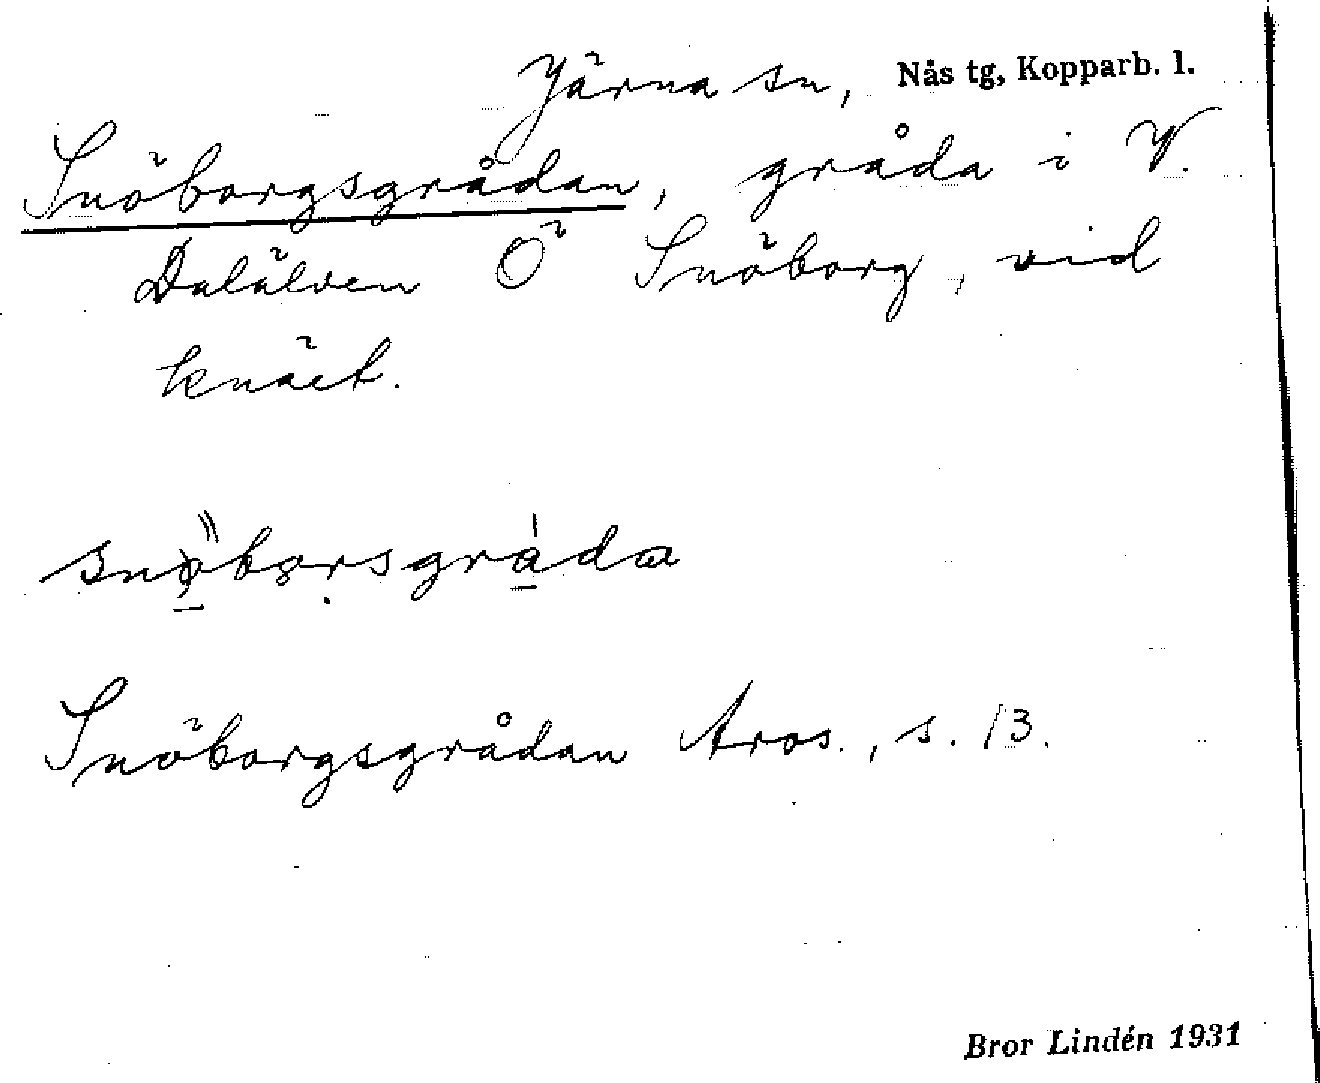 Järna sn, Nås tg, Kopparb. l.
Snöborgsgrådan, gråda i V.
Dalälven Ö Snöborg, vid
knäet.
Snöborgsgrådan Aros., s. 13.
Bror Lindén 1931